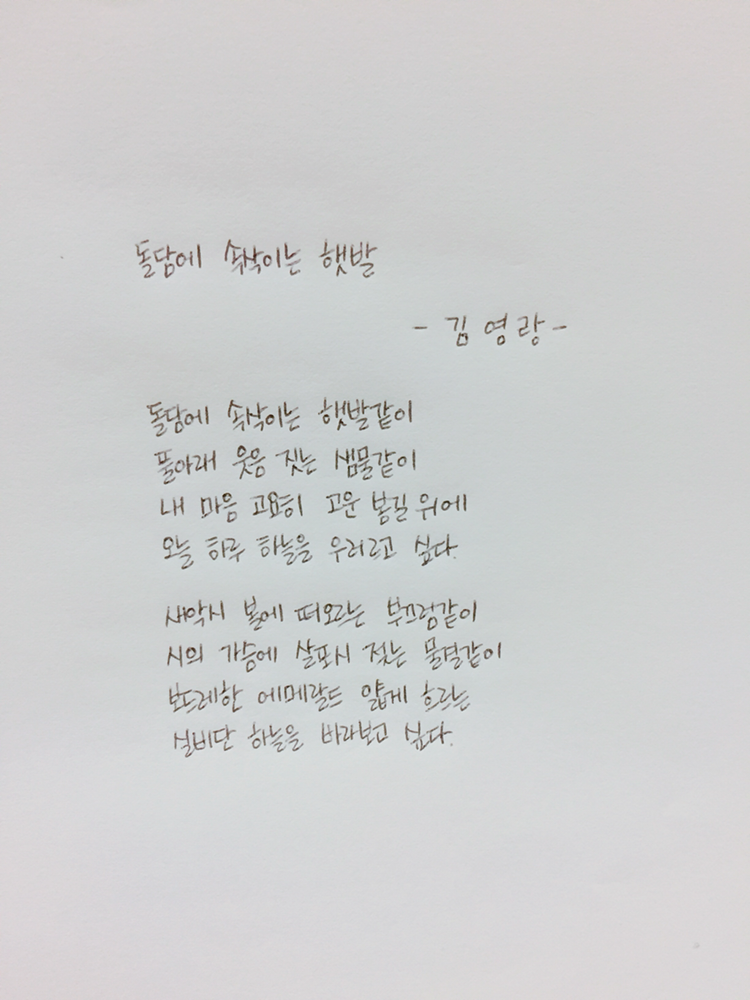 돌담에 속삭이는 햇발
- 김영랑 -
돌담에 속삭이는 햇발같이
풀아래 웃음 짓는 샘물같이
내 마음 고요히 고운 봄길 위에
오늘 하루 하늘을 우러르고 싶다.
새악시 볼에 떠오르는 부끄럼같이
시의 가슴에 살포시 젖는 물결같이
보드레한 에메랄드 얇게 흐르는
실비단 하늘을 바라보고 싶다.